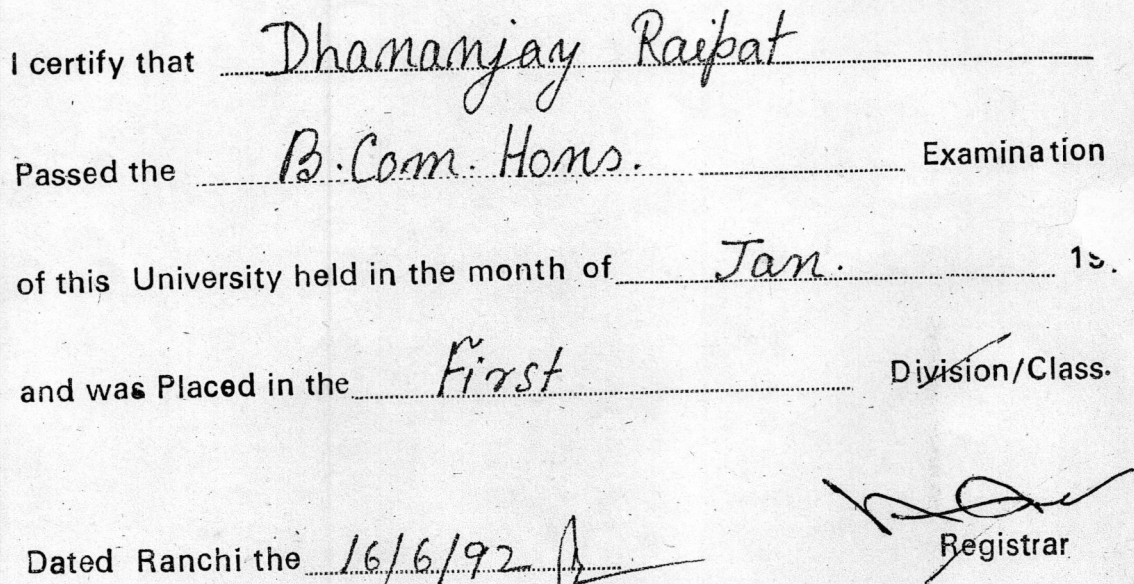 I certify that Dhananjay Raipat
Passed the B.Com. Hons. Examination
of this University held in the month of Jan. 19
and was Placed in the First Division/Class.
Dated Ranchi the 16/6/92
Registrar